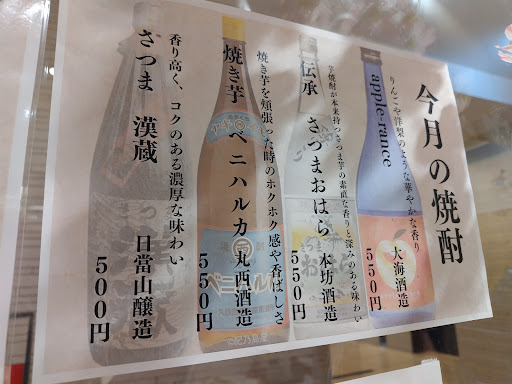 今月の焼酎
apple-rance
りんごや洋梨のような華やかな香り
大海酒造
550円
伝承 さつまおはら
芋焼酎が本来持つさつま芋の素直な香りと深みのある味わい
本坊酒造
500円
焼き芋 ベニハルカ
焼き芋を頬張った時のホクホク感や香ばしさ
丸西酒造
550円
さつま 漢蔵
香り高く、コクのある濃厚な味わい
日當山醸造
500円